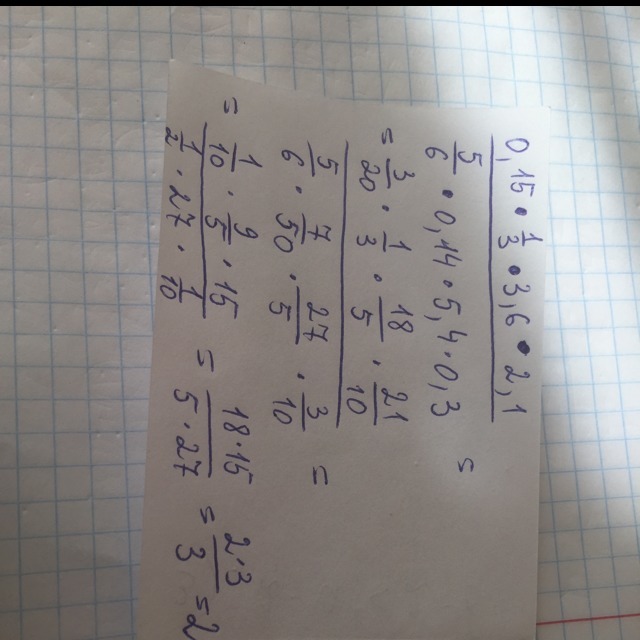 0,15 · 1/3 · 3,6 · 2,1
5/6 · 0,14 · 5,4 · 0,3 =
= 3/20 · 1/3 · 18/5 · 21/10
5/6 · 7/50 · 27/5 · 3/10 =
= 1/10 · 9/5 · 15 / 1/2 · 27 · 1/10 = 18·15 / 5·27 = 2·3 / 3 = 2